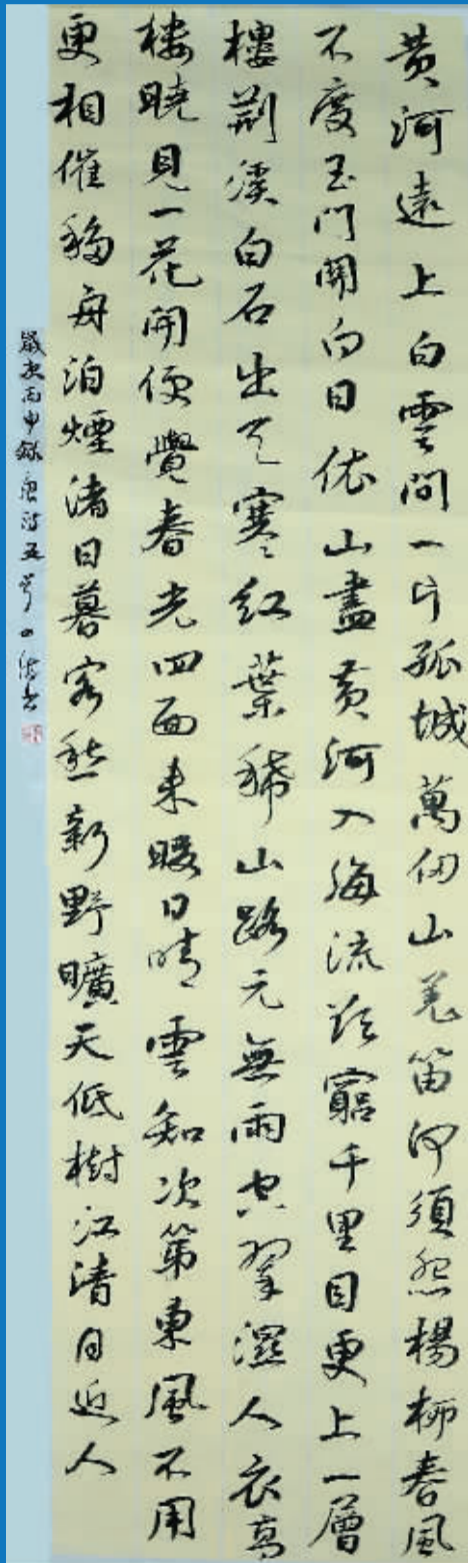 黄河遠上白雲間一片孤城萬仞山羌笛何須怨楊柳春風
不度玉門關白日依山盡黄河入海流欲窮千里目更上一層
樓荆溪白石出天寒紅葉稀山路元無雨空翠濕人衣高
樓曉見一花開便覺春光四面來暖日晴雲知次第東風不用
更相催移舟泊煙渚日暮客愁新野曠天低樹江清月近人
歲次丙申録唐詩五首